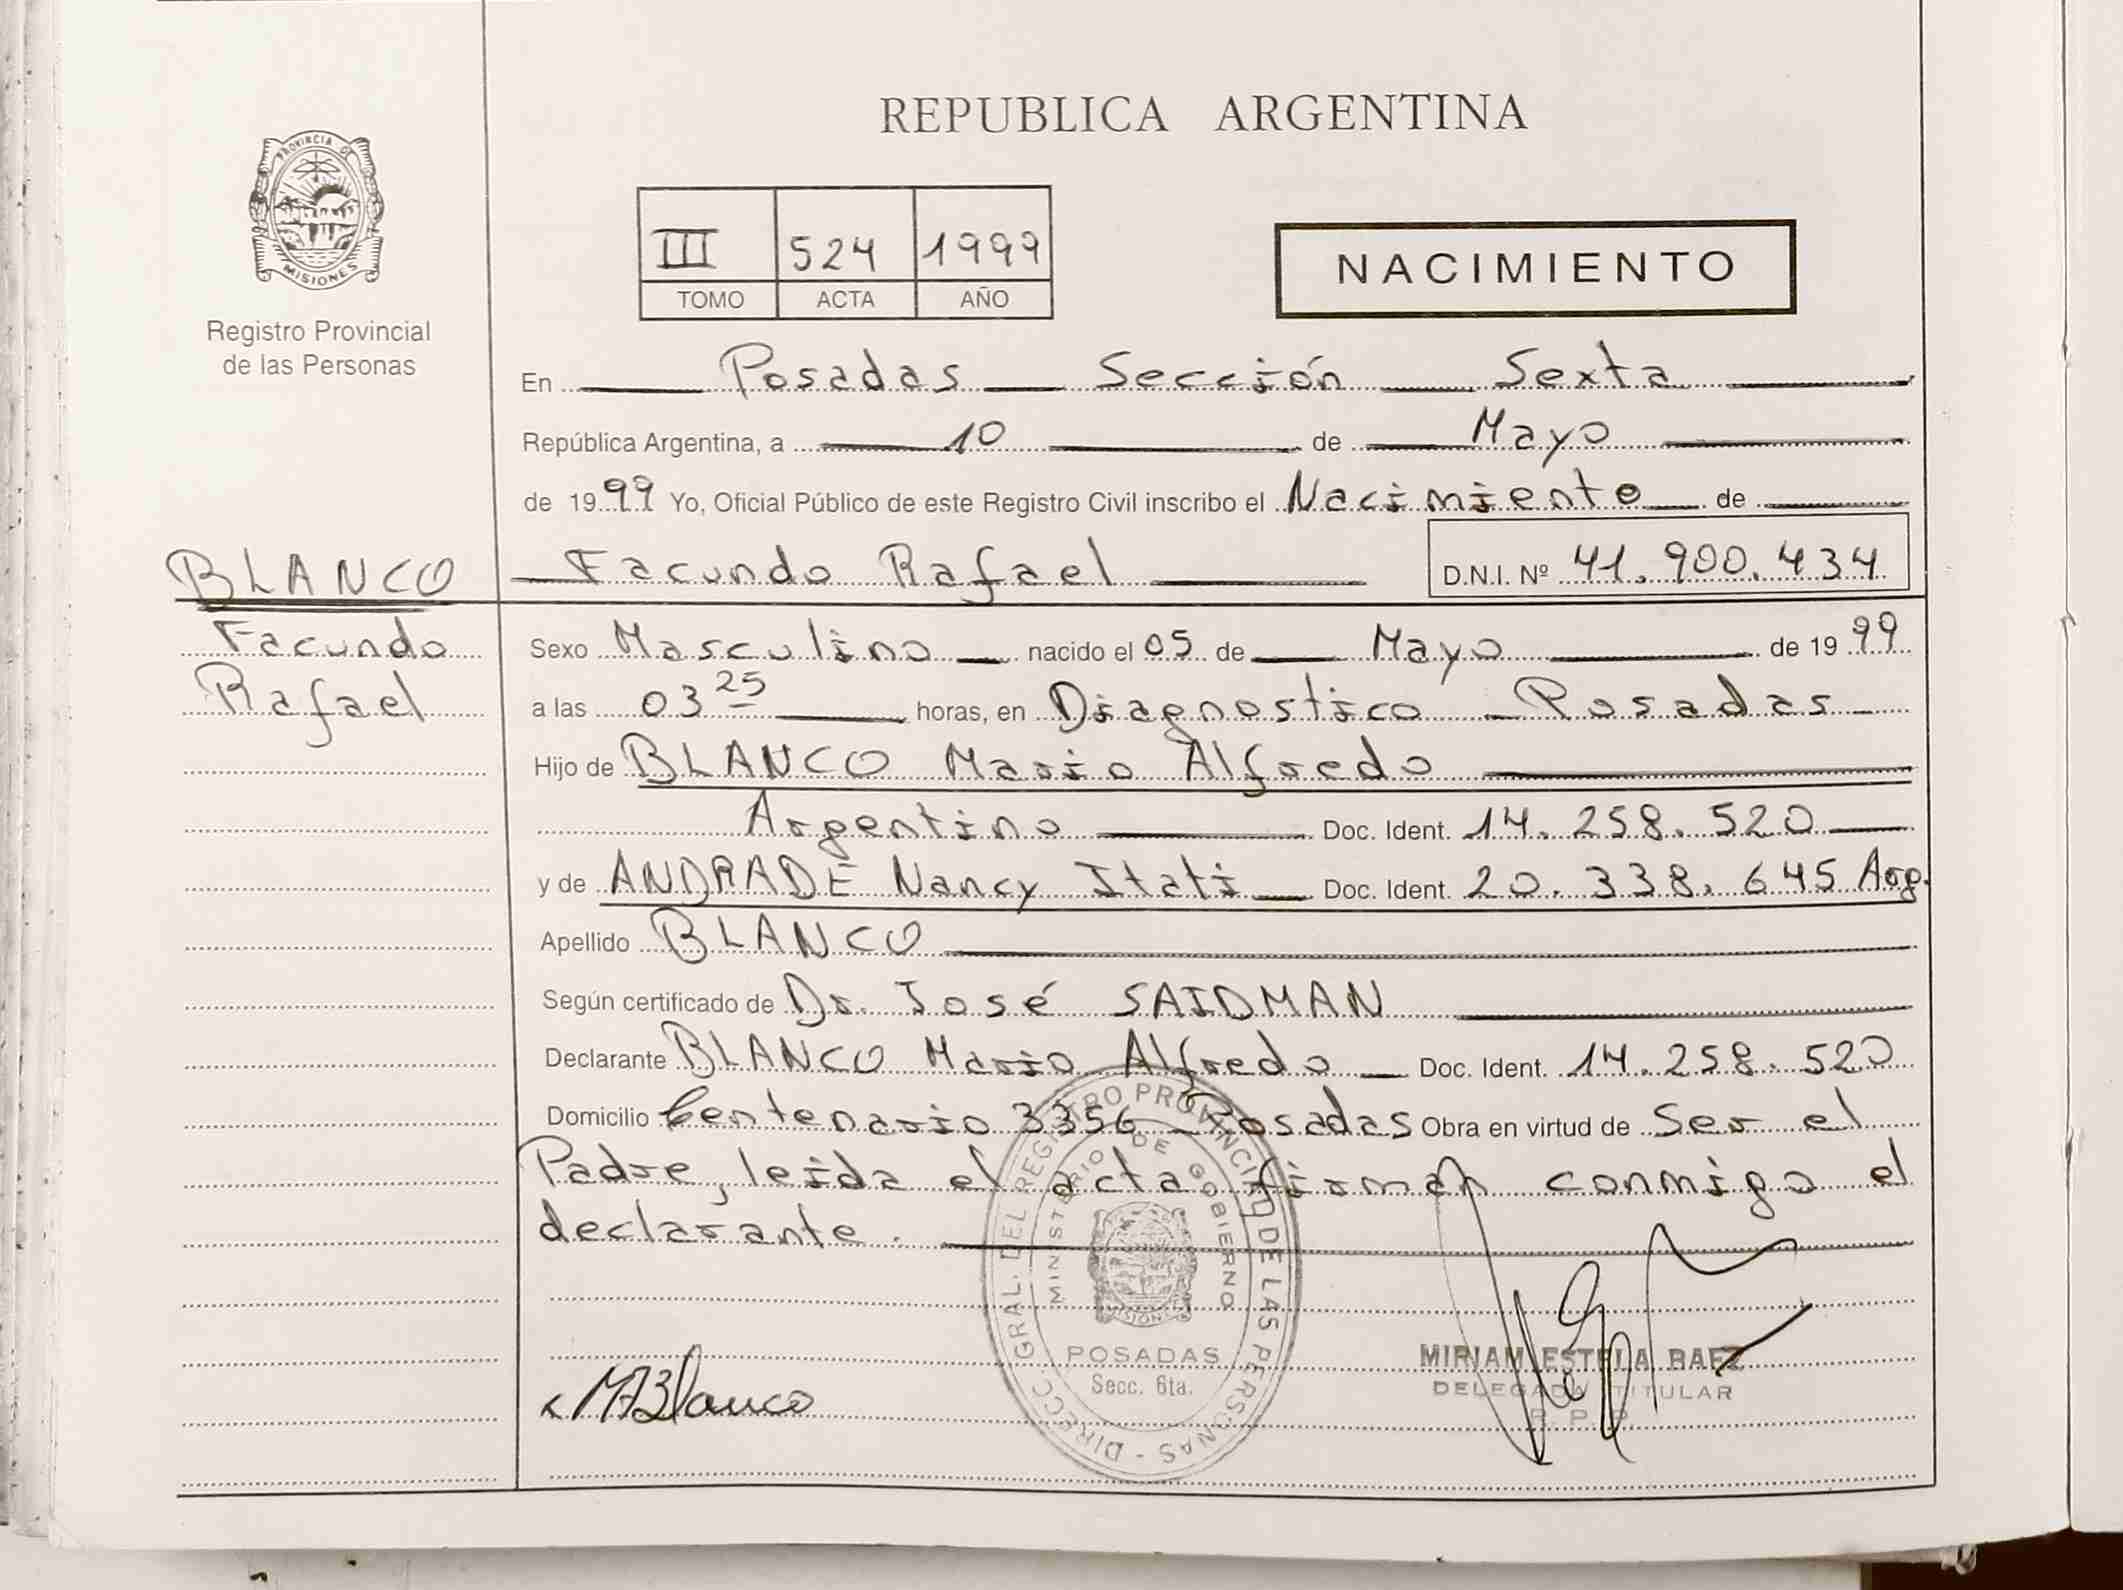 REPUBLICA ARGENTINA
PROVINCIA DE
MISIONES
Registro Provincial
de las Personas
III 524 1999
TOMO ACTA AÑO
NACIMIENTO
En Posadas Sección Sexta
República Argentina, a 10 de Mayo
de 1999 Yo, Oficial Público de este Registro Civil inscribo el Nacimiento de
BLANCO Facundo Rafael D.N.I. Nº 41.900.434
Facundo Sexo Masculino nacido el 05 de Mayo de 1999
Rafael a las 03 25 horas, en Diagnostico Posadas
Hijo de BLANCO Mario Alfredo
Argentino Doc. Ident. 14.258.520
y de ANDRADE Nancy Itati Doc. Ident. 20.338.645 Arg.
Apellido BLANCO
Según certificado de Dr. José SAIDMAN
Declarante BLANCO Mario Alfredo Doc. Ident. 14.258.520
Domicilio Centenario 3356 Posadas Obra en virtud de Ser el
Padre, leida el acta firman conmigo el
declarante.
DIRECC. GRAL. DEL REGISTRO PROVINCIAL DE LAS PERSONAS -
MINISTERIO DE GOBIERNO
MISIONES
POSADAS
Secc. 6ta.
MABlanco
MIRIAM ESTELA BAEZ
DELEGADA TITULAR
R. P. P.